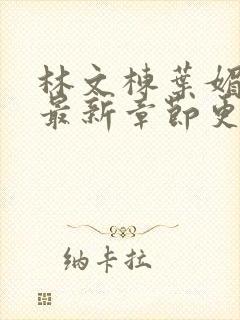 林文栋葉媚
最新章節更
纳卡拉